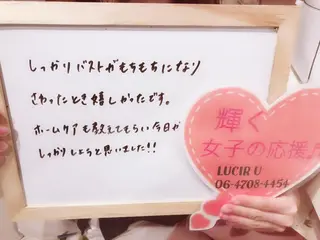 しっかりバストがもちもちになり
さわったとき嬉しかったです。
ホームケアも教えてもらい今日から
しっかりしようと思いました!!
輝く
女子の応援♪
LUCIR U
06-4708-4454